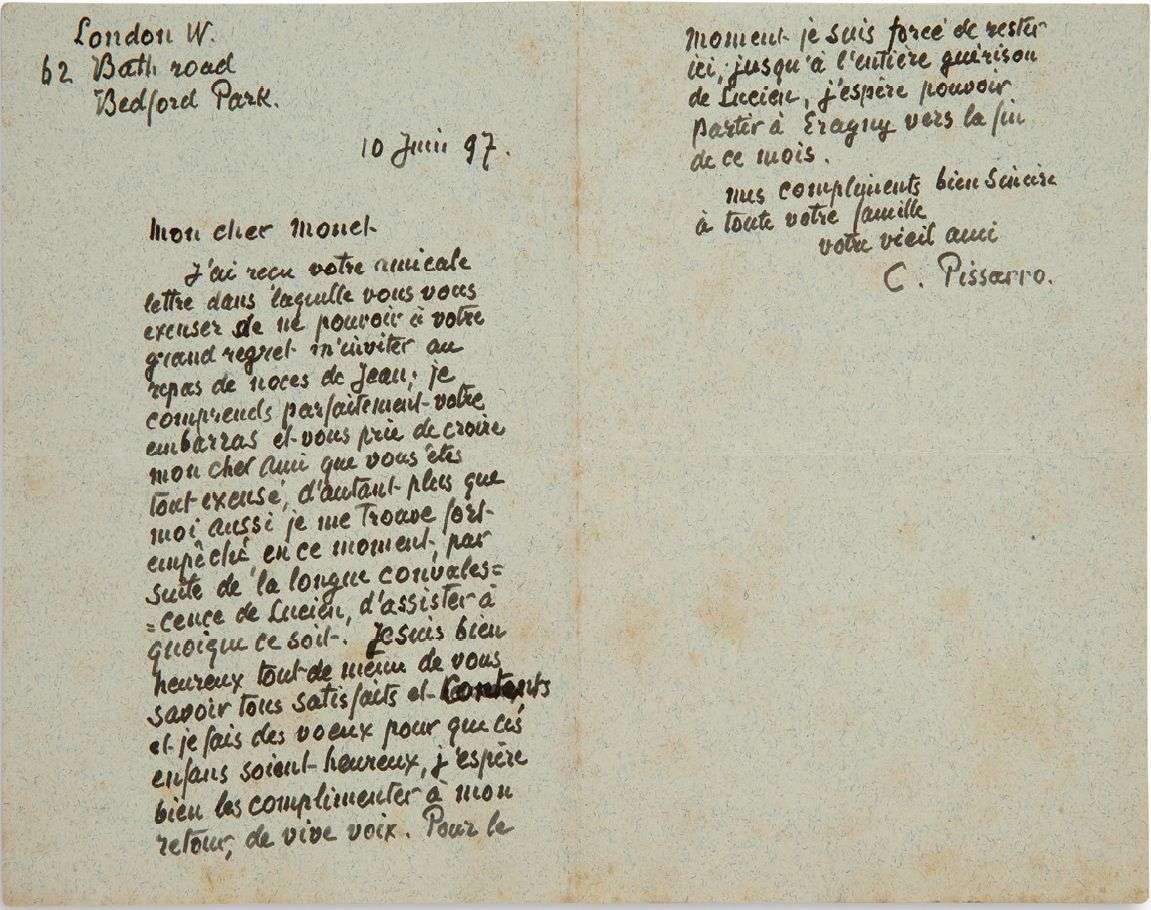 London W.
62 Bath road
Bedford Park.
10 Juin 97.
Mon cher Monet
J'ai reçu votre amicale
lettre dans laquelle vous vous
excuser de ne pouvoir à votre
grand regret m'inviter au
repas de noces de Jean; je
comprends parfaitement votre
embarras et vous prie de croire
mon cher ami que vous êtes
tout excusé, d'autant plus que
moi aussi je me trouve fort
empêché en ce moment, par
suite de la longue convales=
=cence de Lucien, d'assister à
quoique ce soit. Je suis bien
heureux tout de même de vous
savoir tous satisfaits et contents
et je fais des voeux pour que ces
enfans soient heureux, j'espère
bien les complimenter à mon
retour, de vive voix. Pour le
moment je suis forcé de rester
ici, jusqu'à l'entière guérison
de Lucien, j'espère pouvoir
partir à Eragny vers la fin
de ce mois.
mes compliments bien sincère
à toute votre famille
votre vieil ami
C. Pissarro.